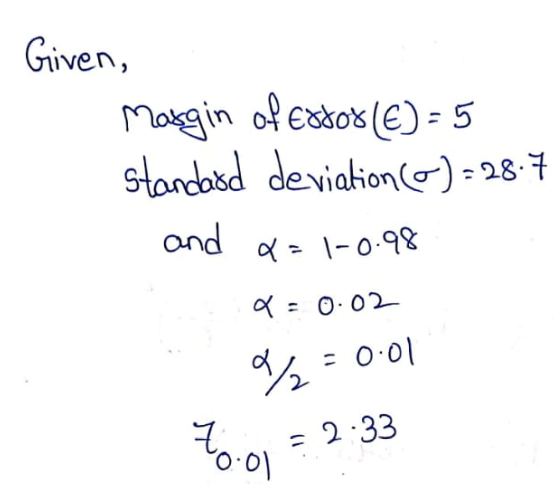 Given,
Margin of Error (E) = 5
Standard deviation (σ) = 28.7
and α = 1-0.98
α = 0.02
α/2 = 0.01
Z0.01 = 2.33